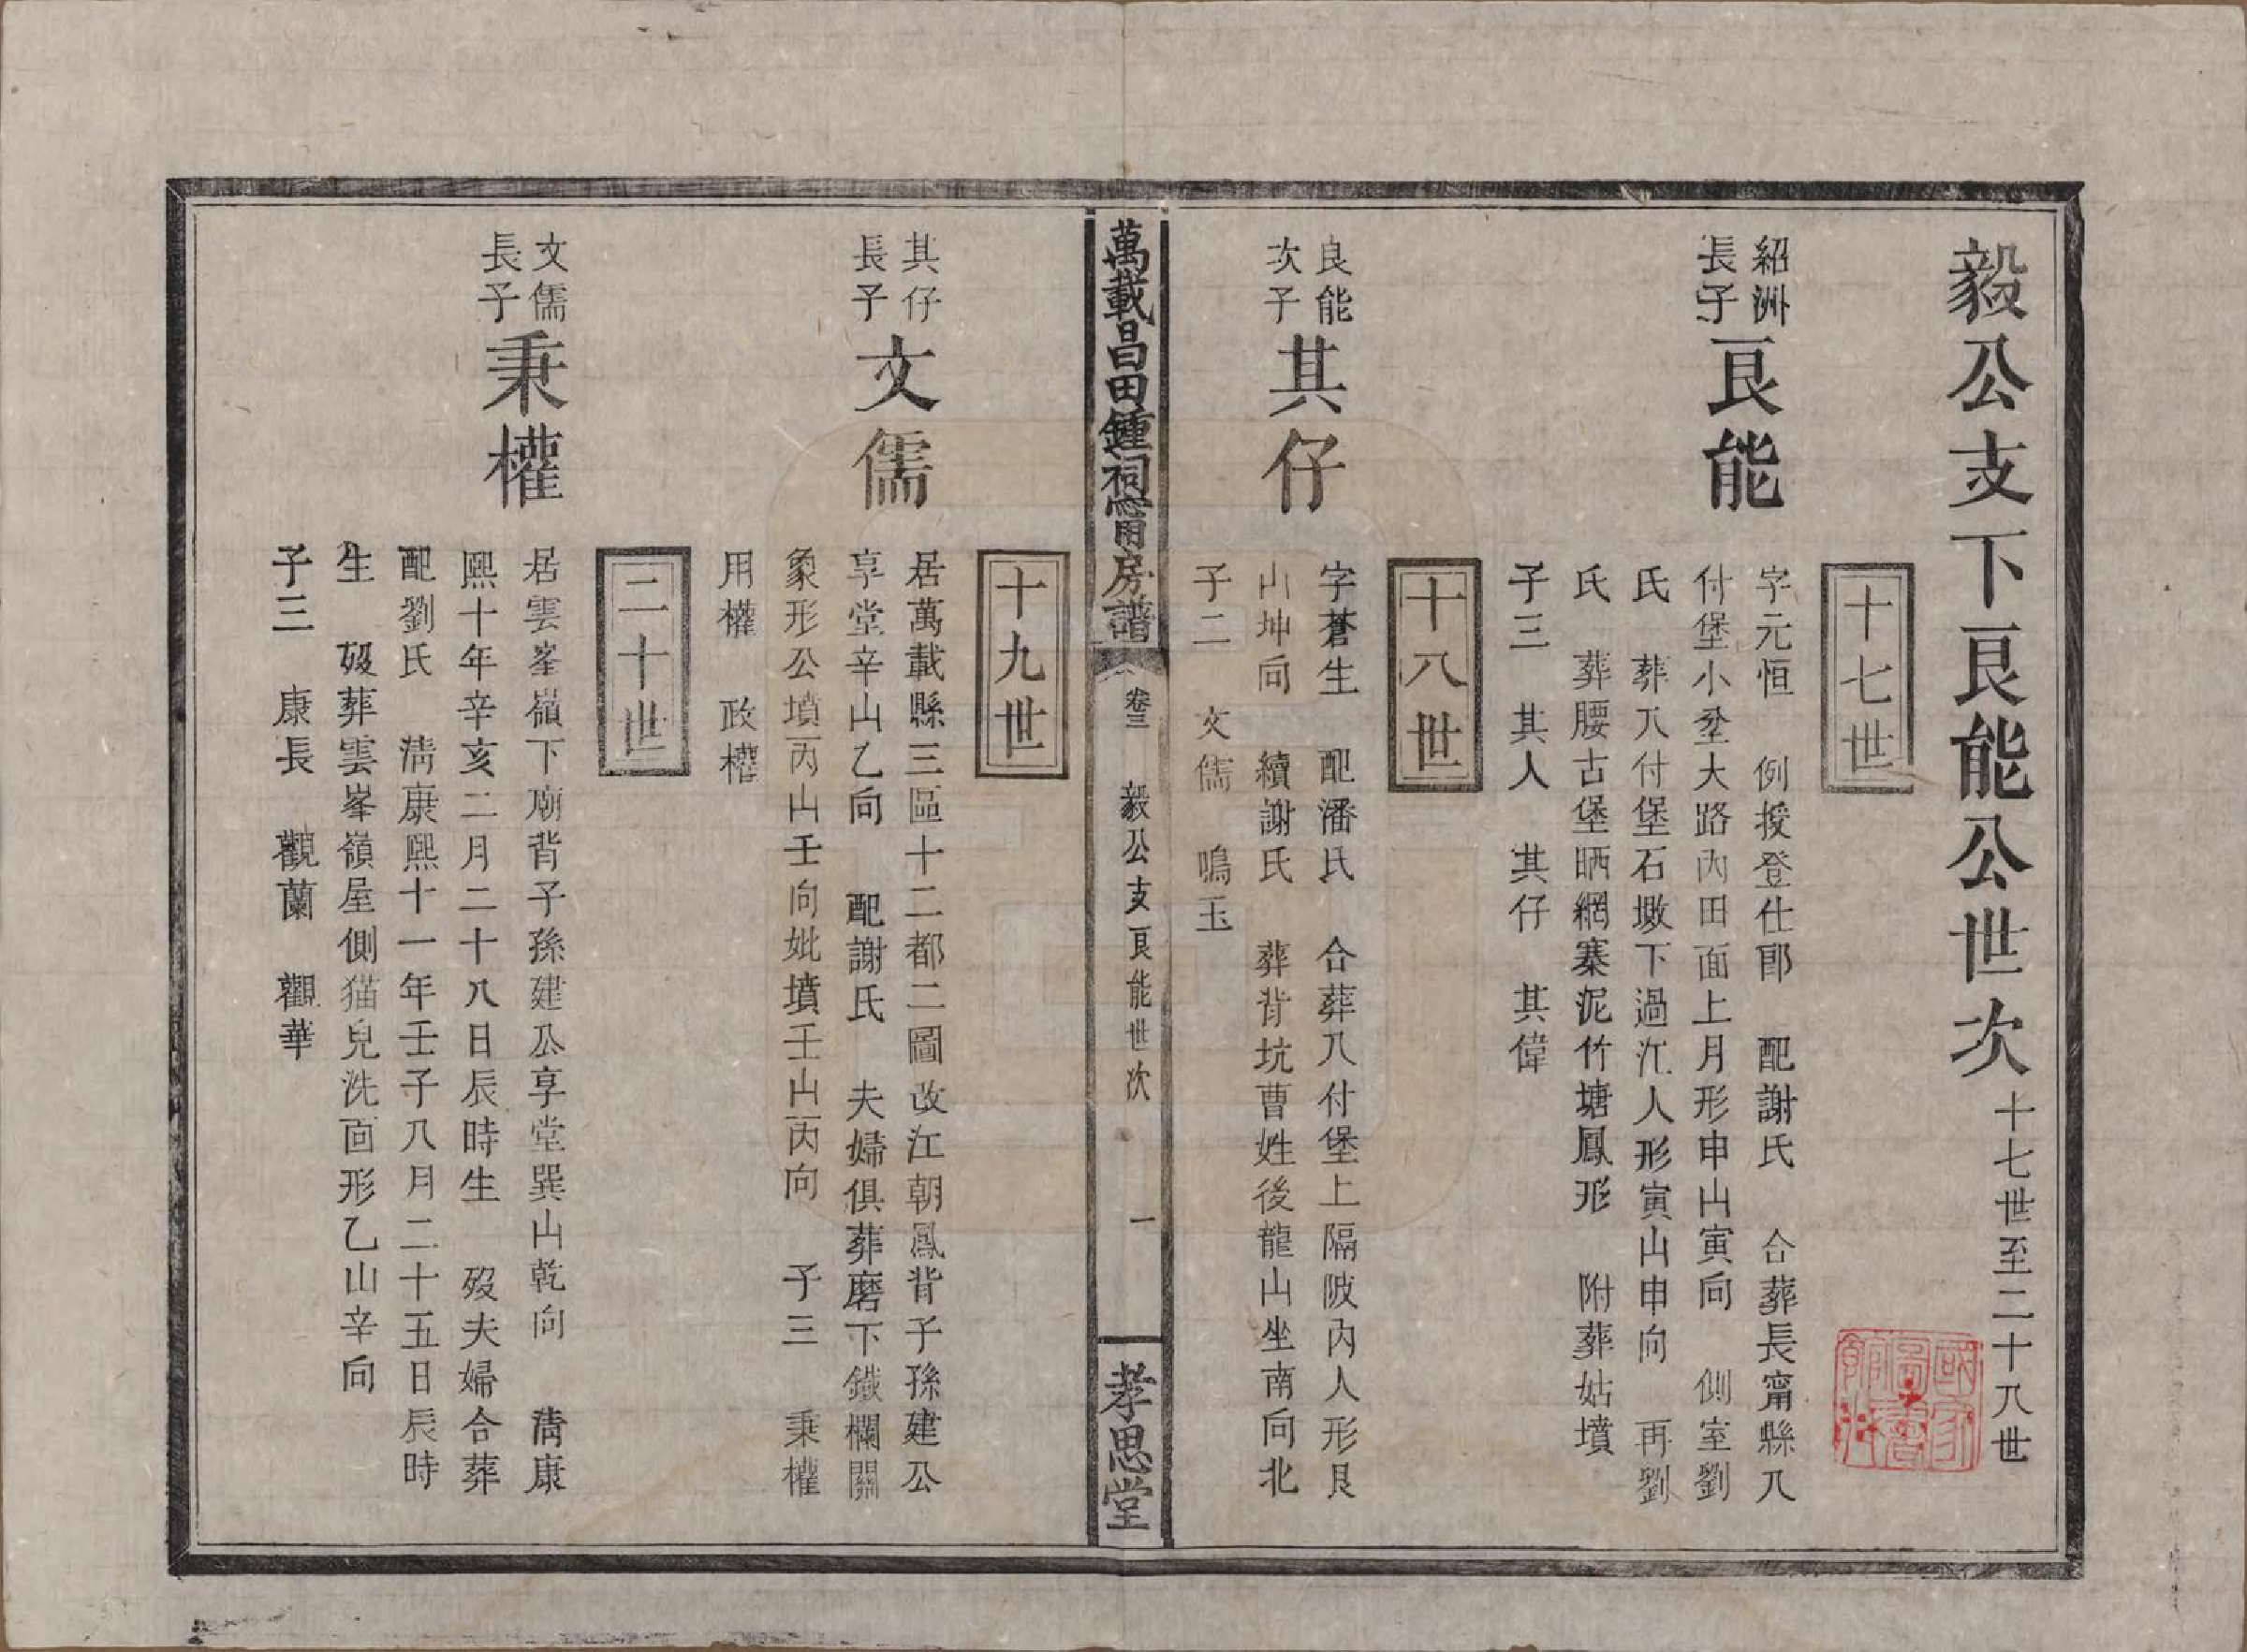 毅公支下良能公世次 十七世至二十八世
十七世
紹洲長子 良能
字元恒 例授登仕郎 配謝氏 合葬長甯縣八
付堡小坌大路內田面上月形申山寅向 側室劉
氏 葬八付堡石墩下過江人形寅山申向 再劉
氏 葬腰古堡晒網寨泥竹塘鳳形 附葬姑墳
子三 其人 其仔 其偉
十八世
良能次子 其仔
字蒼生 配潘氏 合葬八付堡上隔陂內人形艮
山坤向 續謝氏 葬背坑曹姓後龍山坐南向北
子二 文儒 鳴玉
萬載昌田鍾祠甯房譜 卷三 毅公支良能世次 一 孝思堂
十九世
其仔長子 文儒
居萬載縣三區十二都二圖改江朝鳳背子孫建公
享堂辛山乙向 配謝氏 夫婦俱葬磨下鐵欄關
象形公墳丙山壬向妣墳壬山丙向 子三 秉權
用權 政權
二十世
文儒長子 秉權
居雲峯嶺下廟背子孫建公享堂巽山乾向 清康
熙十年辛亥二月二十八日辰時生 歿夫婦合葬
配劉氏 清康熙十一年壬子八月二十五日辰時
生 歿葬雲峯嶺屋側猫兒洗面形乙山辛向
子三 康長 觀蘭 觀華
國家圖書館藏